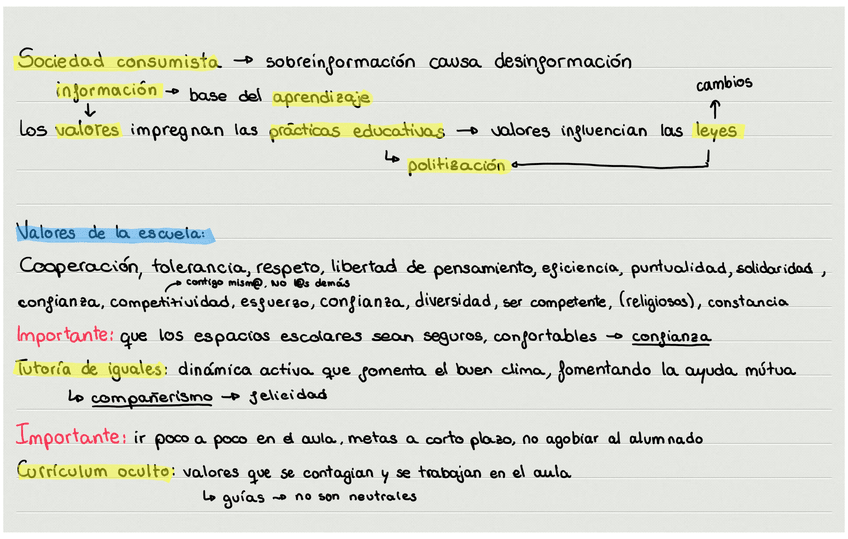 Sociedad consumista → sobreinformación causa desinformación
información → base del aprendizaje
cambios
Los valores impregnan las prácticas educativas → valores influencian las leyes
↳ politización
Valores de la escuela:
Cooperación, tolerancia, respeto, libertad de pensamiento, eficiencia, puntualidad, solidaridad,
contigo mism@, NO l@s demás
confianza, competitividad, esfuerzo, confianza, diversidad, ser competente, (religiosos), constancia
Importante: que los espacios escolares sean seguros, confortables → confianza
Tutoría de iguales: dinámica activa que fomenta el buen clima, fomentando la ayuda mútua
↳ compañerismo → felicidad
Importante: ir poco a poco en el aula, metas a corto plazo, no agobiar al alumnado
Currículum oculto: valores que se contagian y se trabajan en el aula
↳ guías → no son neutrales